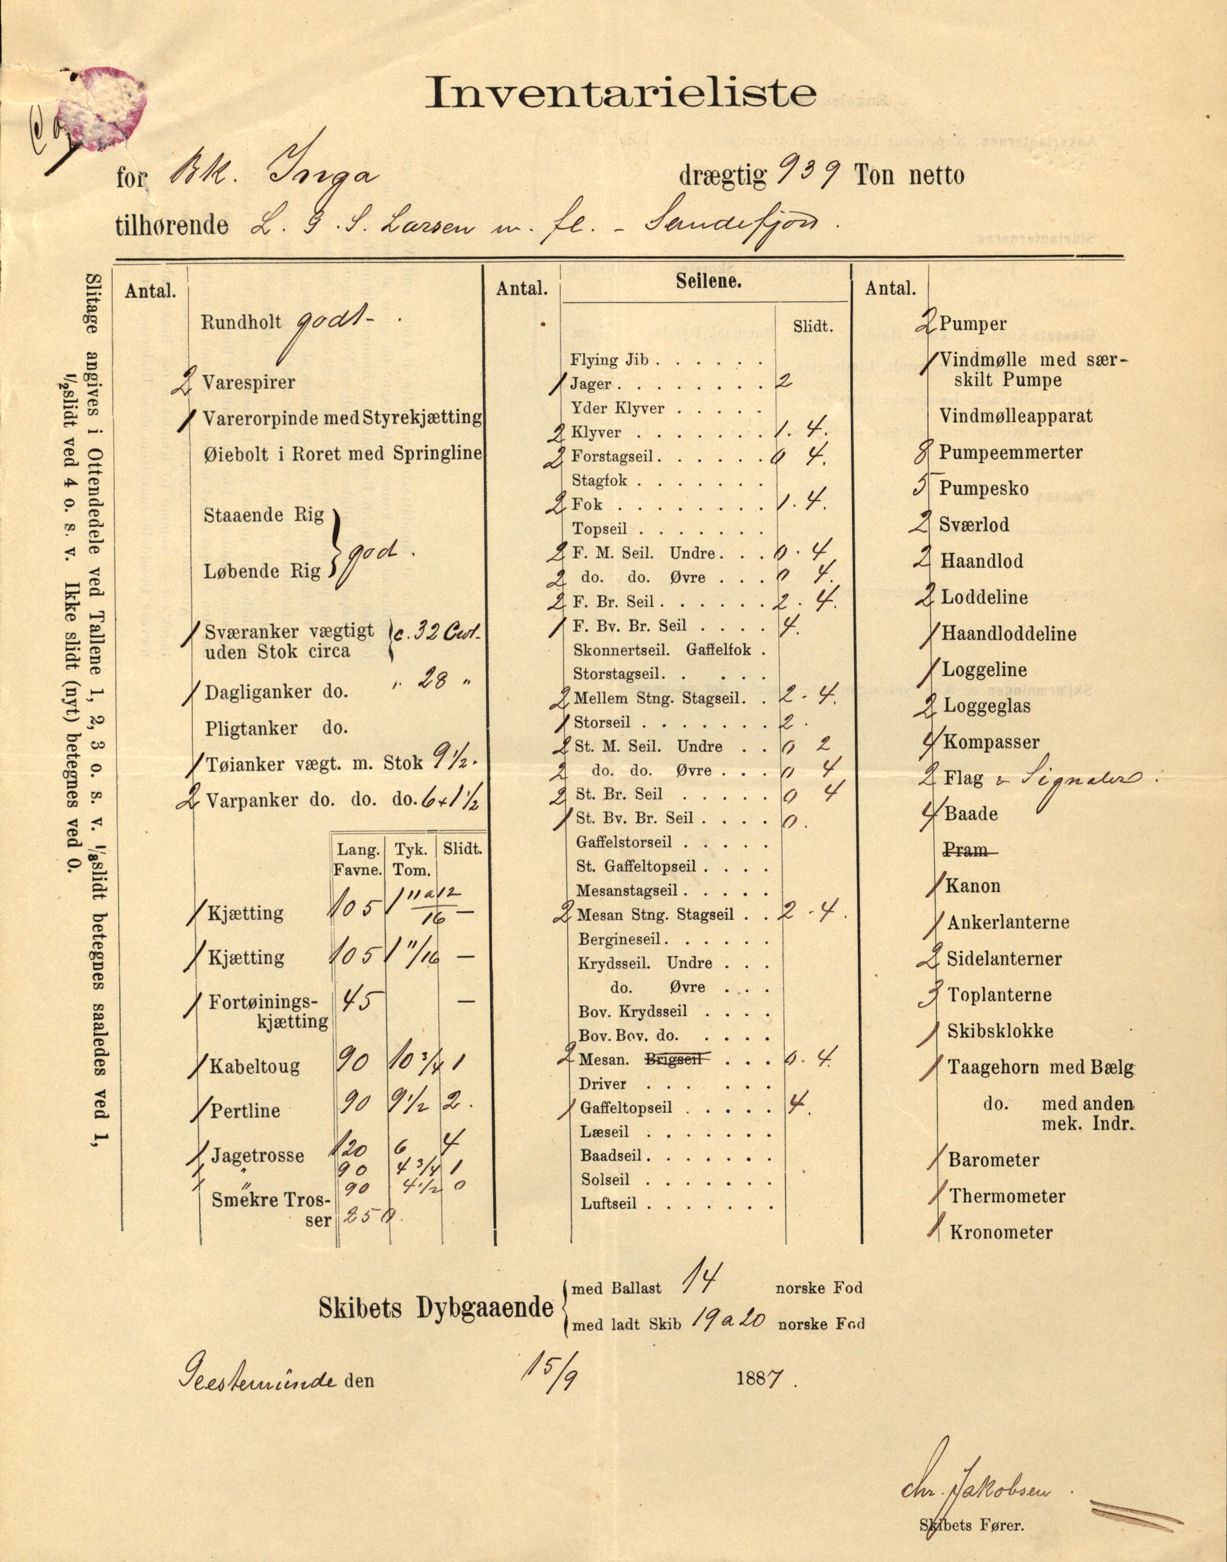 Inventarieliste
for Bk. Inga drægtig 939 Ton netto
tilhørende L. G. S. Larsen m. fl. – Sandefjord.
Slitage angives i Ottendedele ved Tallene 1, 2, 3 o. s. v. 1/8 slidt betegnes saaledes ved 1,
1/2 slidt ved 4 o. s. v. Ikke slidt (nyt) betegnes ved 0.
Antal.
Rundholt godt
2 Varespirer
1 Varerorpinde med Styrekjætting
Øiebolt i Roret med Springline
Staaende Rig
Løbende Rig } god.
1 Sværanker vægtigt
uden Stok circa { c. 32 Cwt.
1 Dagliganker do. " 28 "
Pligtanker do.
1 Tøianker vægt. m. Stok 9 1/2.
2 Varpanker do. do. do. 6 + 1 1/2
Lang. Tyk. Slidt.
Favne. Tom.
1 Kjætting 105 1 11 a 12/16 —
1 Kjætting 105 1 11/16 —
1 Fortøinings-
kjætting 45 —
1 Kabeltoug 90 10 3/4 1
1 Pertline 90 9 1/2 2.
1 Jagetrosse 120 6 4
1 " 90 4 3/4 1
1 " 90 4 1/2 0
Smekre Tros-
ser 250.
Antal. Seilene.
Slidt.
Flying Jib . . . . . .
1 Jager . . . . . . . . 2
Yder Klyver . . . . .
2 Klyver . . . . . . . 1. 4.
2 Forstagseil . . . . . . 0 4.
Stagfok . . . . . . .
2 Fok . . . . . . . . 1. 4.
Topseil . . . . . . .
2 F. M. Seil. Undre . . . 0. 4
2 do. do. Øvre . . . 0 4.
2 F. Br. Seil . . . . . . 2. 4.
1 F. Bv. Br. Seil . . . . 4.
Skonnertseil. Gaffelfok .
Storstagseil. . . . .
2 Mellem Stng. Stagseil. . 2. 4.
1 Storseil . . . . . . . 2.
2 St. M. Seil. Undre . . 0 2
2 do. do. Øvre . . . 0 4
2 St. Br. Seil . . . . . 0 4
1 St. Bv. Br. Seil . . . . 0.
Gaffelstorseil . . . . .
St. Gaffeltopseil . . . .
Mesanstagseil . . . . .
2 Mesan Stng. Stagseil . . 2. 4.
Bergineseil . . . . . .
Krydsseil. Undre . . .
do. Øvre . . .
Bov. Krydsseil . . . .
Bov. Bov. do. . . . .
2 Mesan. Brigseil . . . 0. 4.
Driver . . . . . .
1 Gaffeltopseil . . . . . 4.
Læseil . . . . . . .
Baadseil . . . . . . .
Solseil . . . . . . .
Luftseil . . . . . . .
Antal.
2 Pumper
1 Vindmølle med sær-
skilt Pumpe
Vindmølleapparat
8 Pumpeemmerter
5 Pumpesko
2 Sværlod
2 Haandlod
2 Loddeline
1 Haandloddeline
1 Loggeline
2 Loggeglas
4 Kompasser
2 Flag & Signaler.
4 Baade
Pram
1 Kanon
1 Ankerlanterne
2 Sidelanterner
3 Toplanterne
1 Skibsklokke
1 Taagehorn med Bælg
do. med anden
mek. Indr.
1 Barometer
1 Thermometer
1 Kronometer
Skibets Dybgaaende { med Ballast 14 norske Fod
med ladt Skib 19 a 20 norske Fod
Geestemünde den 15/9 1887.
Chr. Jakobsen.
Skibets Fører.